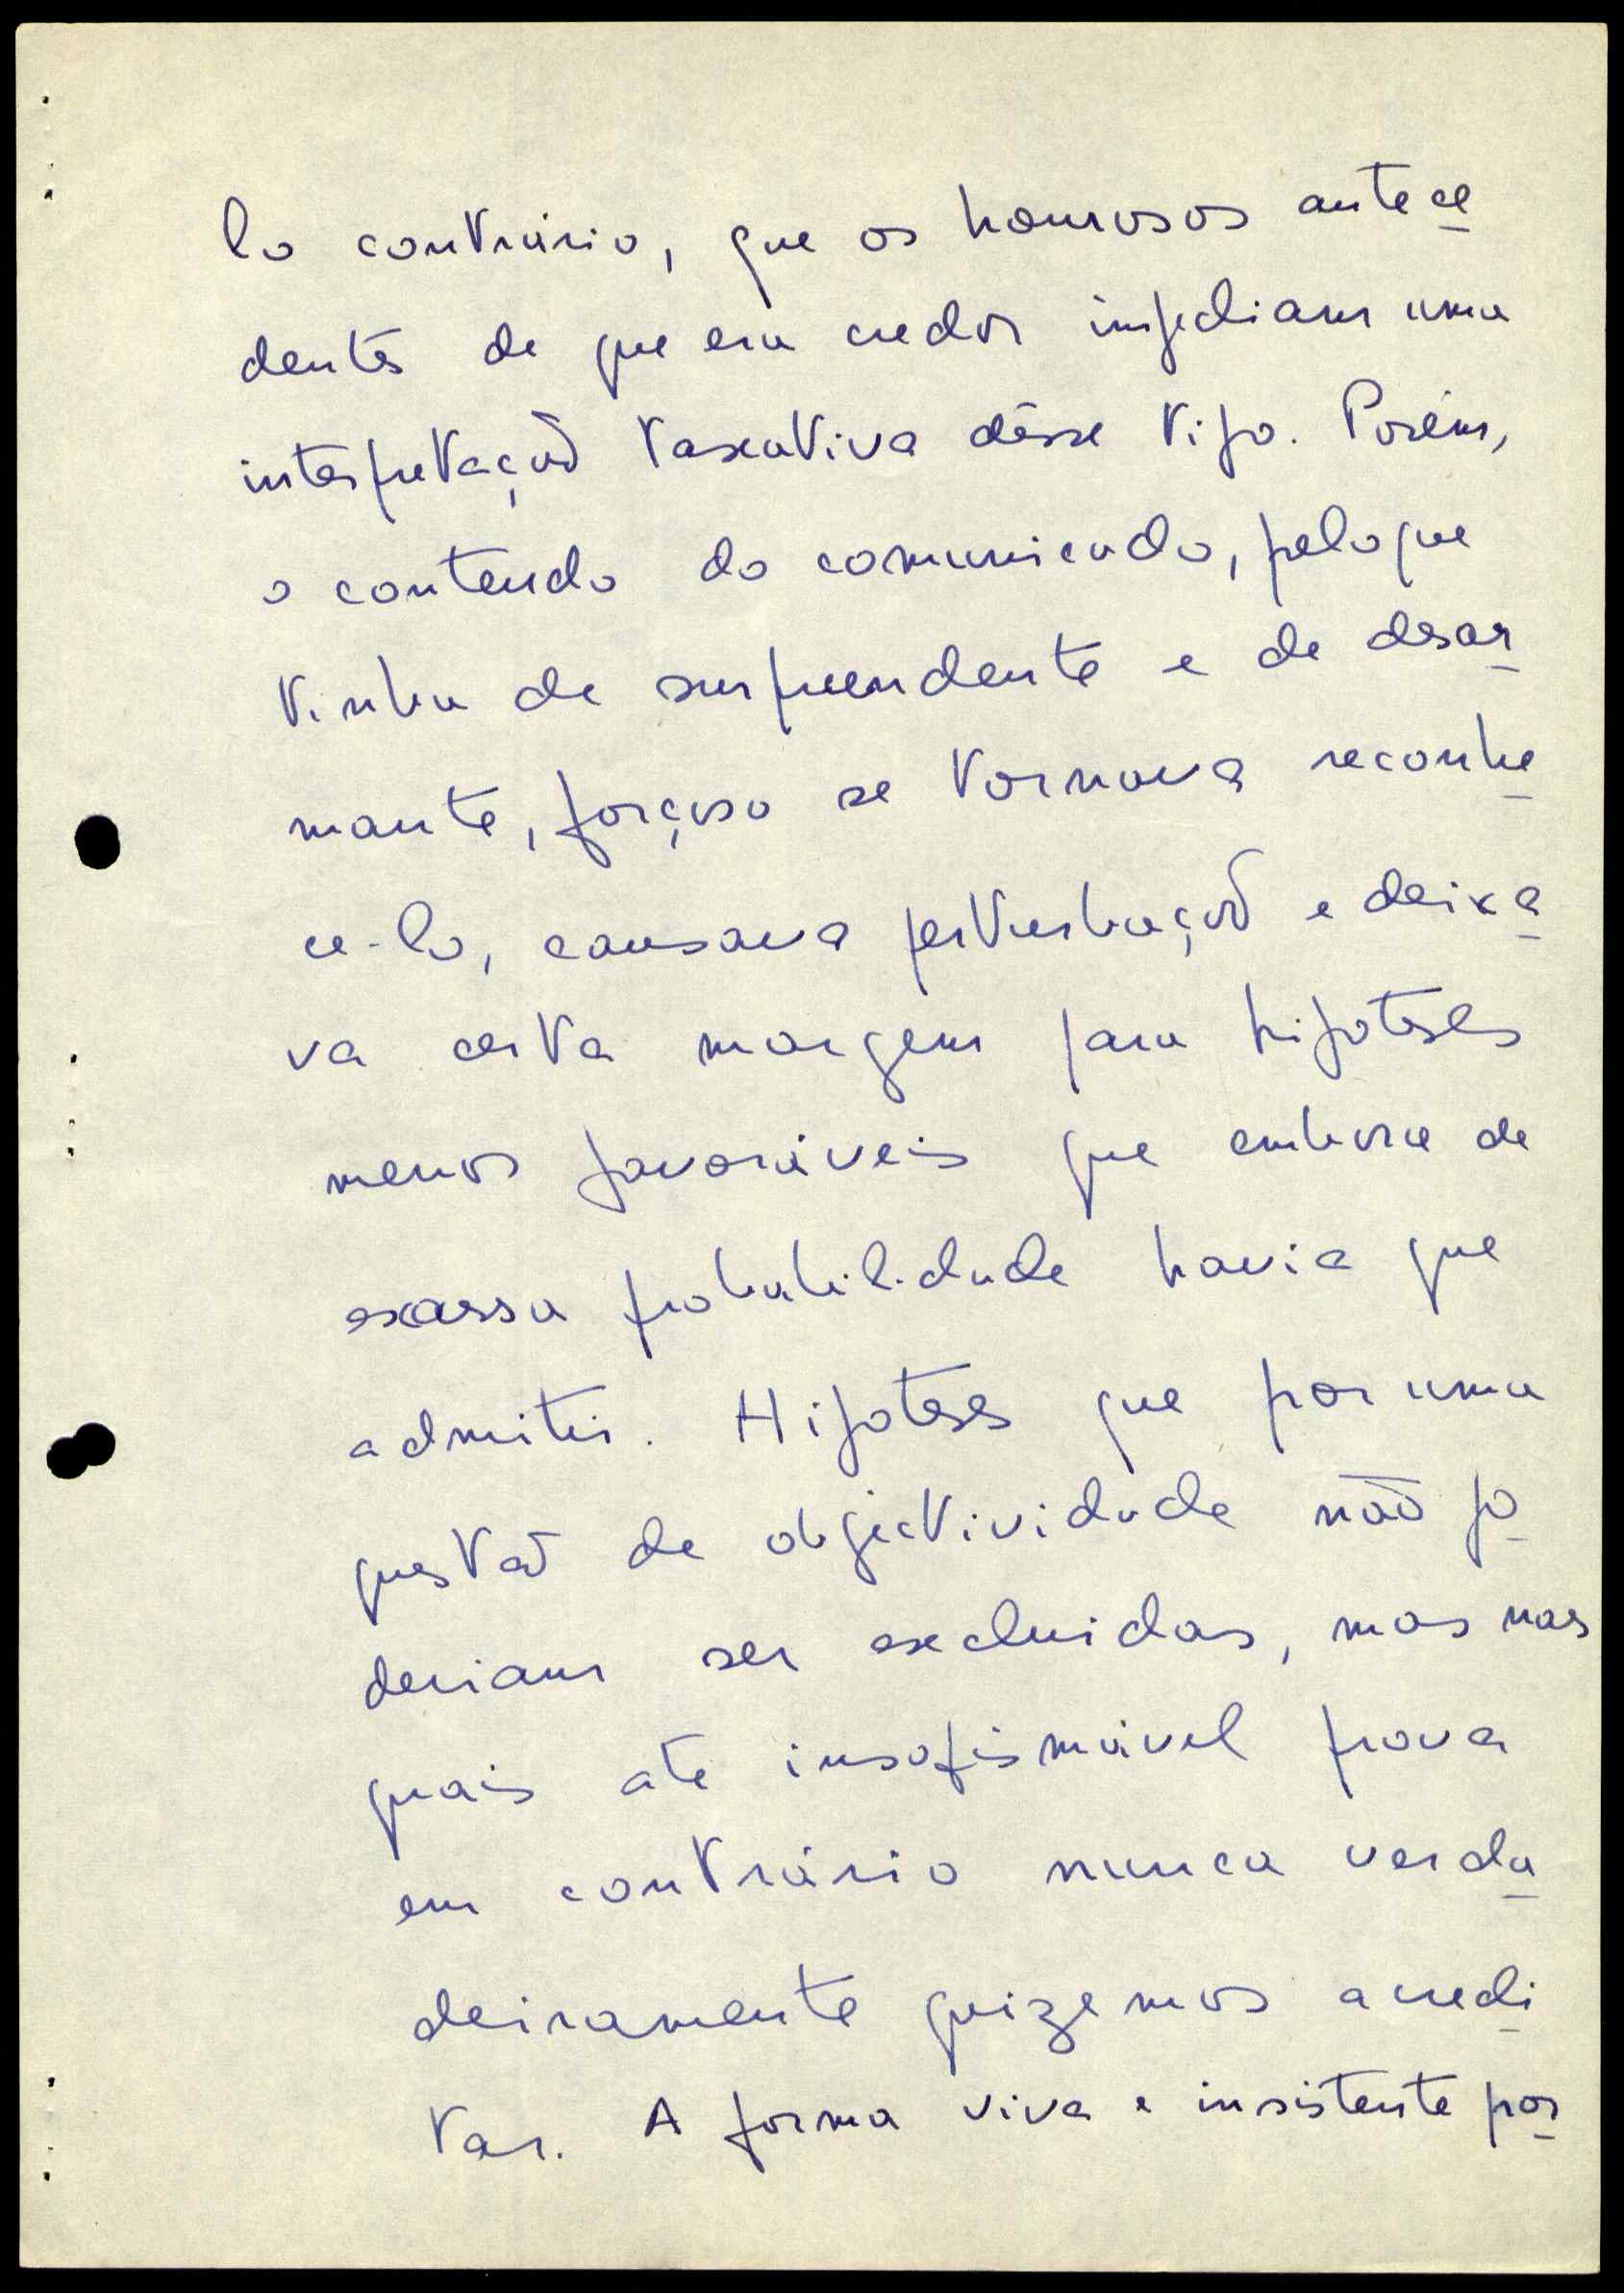 lo contrário, que os honrosos antece
dentes de que era credor impediam uma
interpretação taxativa dêsse tipo. Porém,
o conteudo do comunicado, pelo que
tinha de surpreendente e de desar
mante, forçoso se tornava reconhe
ce-lo, causava perturbação e deixa
va certa margem para hipoteses
menos favoráveis que embora de
escassa probabilidade havia que
admitir. Hipoteses que por uma
questão de objectividade não po
deriam ser excluidas, mas nas
quais até insofismável prova
em contrário nunca verda
deiramente quizemos acredi
tar. A forma viva e insistente por